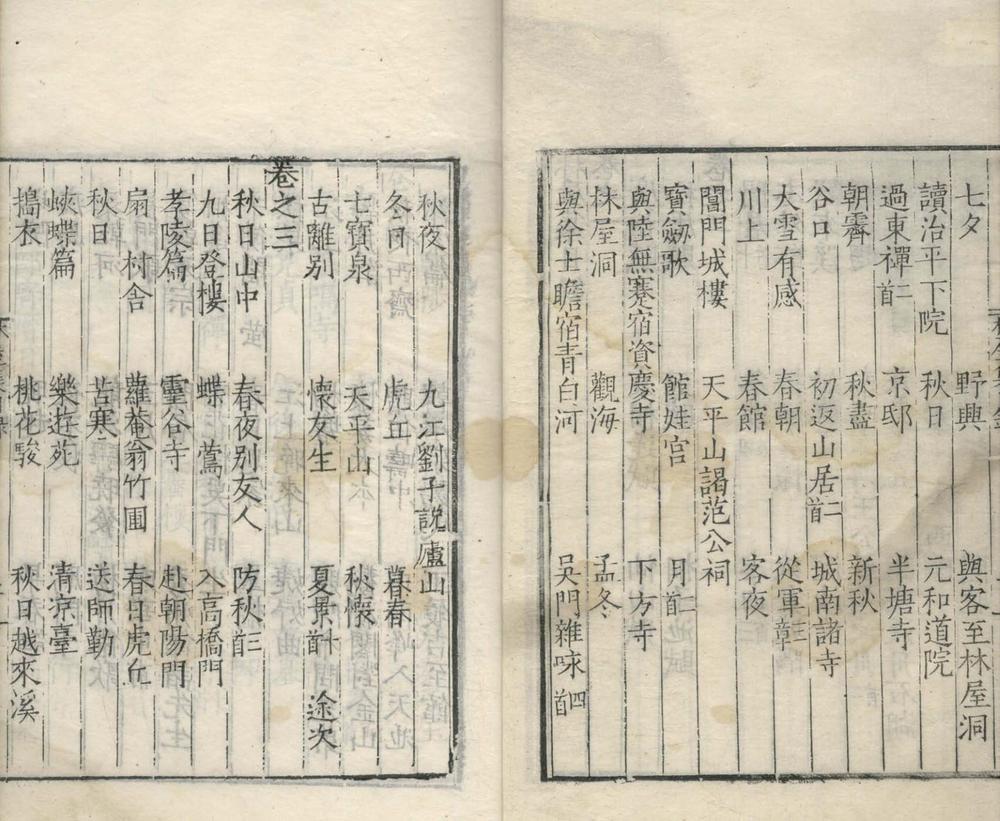 七夕 野興 與客至林屋洞
讀治平下院 秋日 元和道院
過東禪二首 京邸 半塘寺
朝霽 秋盡 新秋
谷口 初返山居二首 城南諸寺
大雪有感 春朝 從軍三章
川上 春館 客夜
閶門城樓 天平山謁范公祠
寶劒歌 館娃宮 月二首
與陸無蹇宿資慶寺 下方寺
林屋洞 觀海 孟冬
與徐士瞻宿青白河 吳門雜咏四首
秋夜 九江劉子說廬山
冬日西齋 虎丘 暮春
七寶泉 天平山 秋懷
古離別 懷友生 夏景十首 途次
卷之三
秋日山中 春夜別友人 防秋三首
九日登樓 蝶 鶯 入高橋門
孝陵篇 靈谷寺 赴朝陽門
扇 村舍 蘿菴翁竹圃 春日虎丘
秋日 苦寒 送師勤
峽蝶篇 樂遊苑 清涼臺
搗衣 桃花駿 秋日越來溪